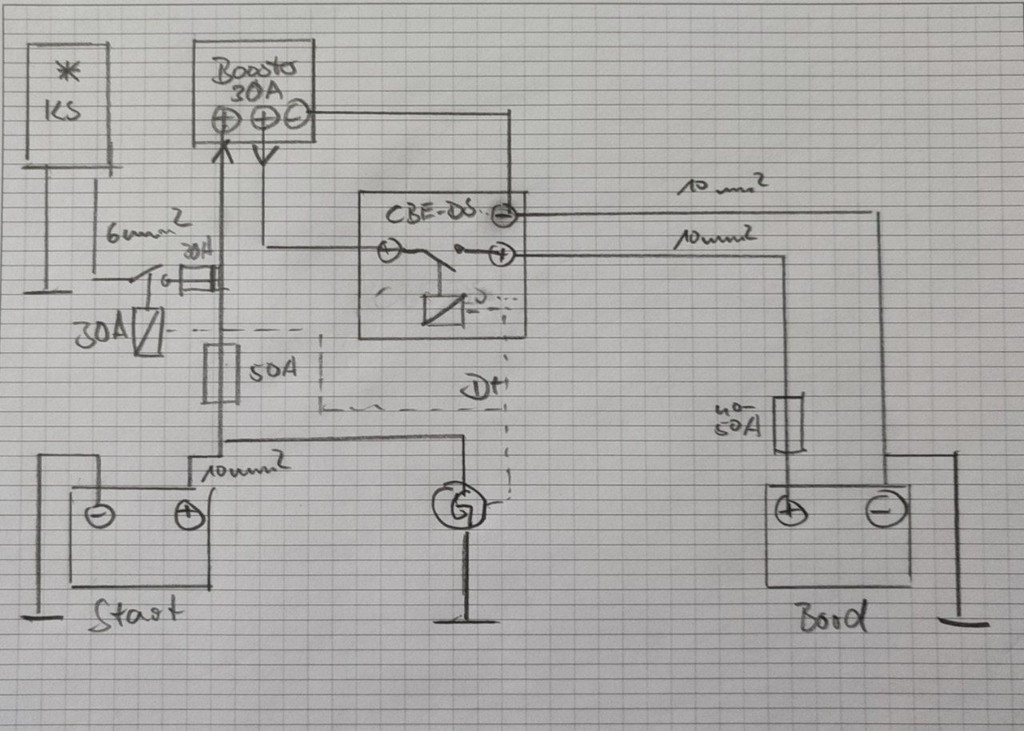 *
KS
Booster
30A
+ + -
CBE-DS
-
10mm²
+ +
10mm²
6mm²
20A
30A
50A
D+
40-
50A
10mm²
- +
G
+ -
Start
Bord